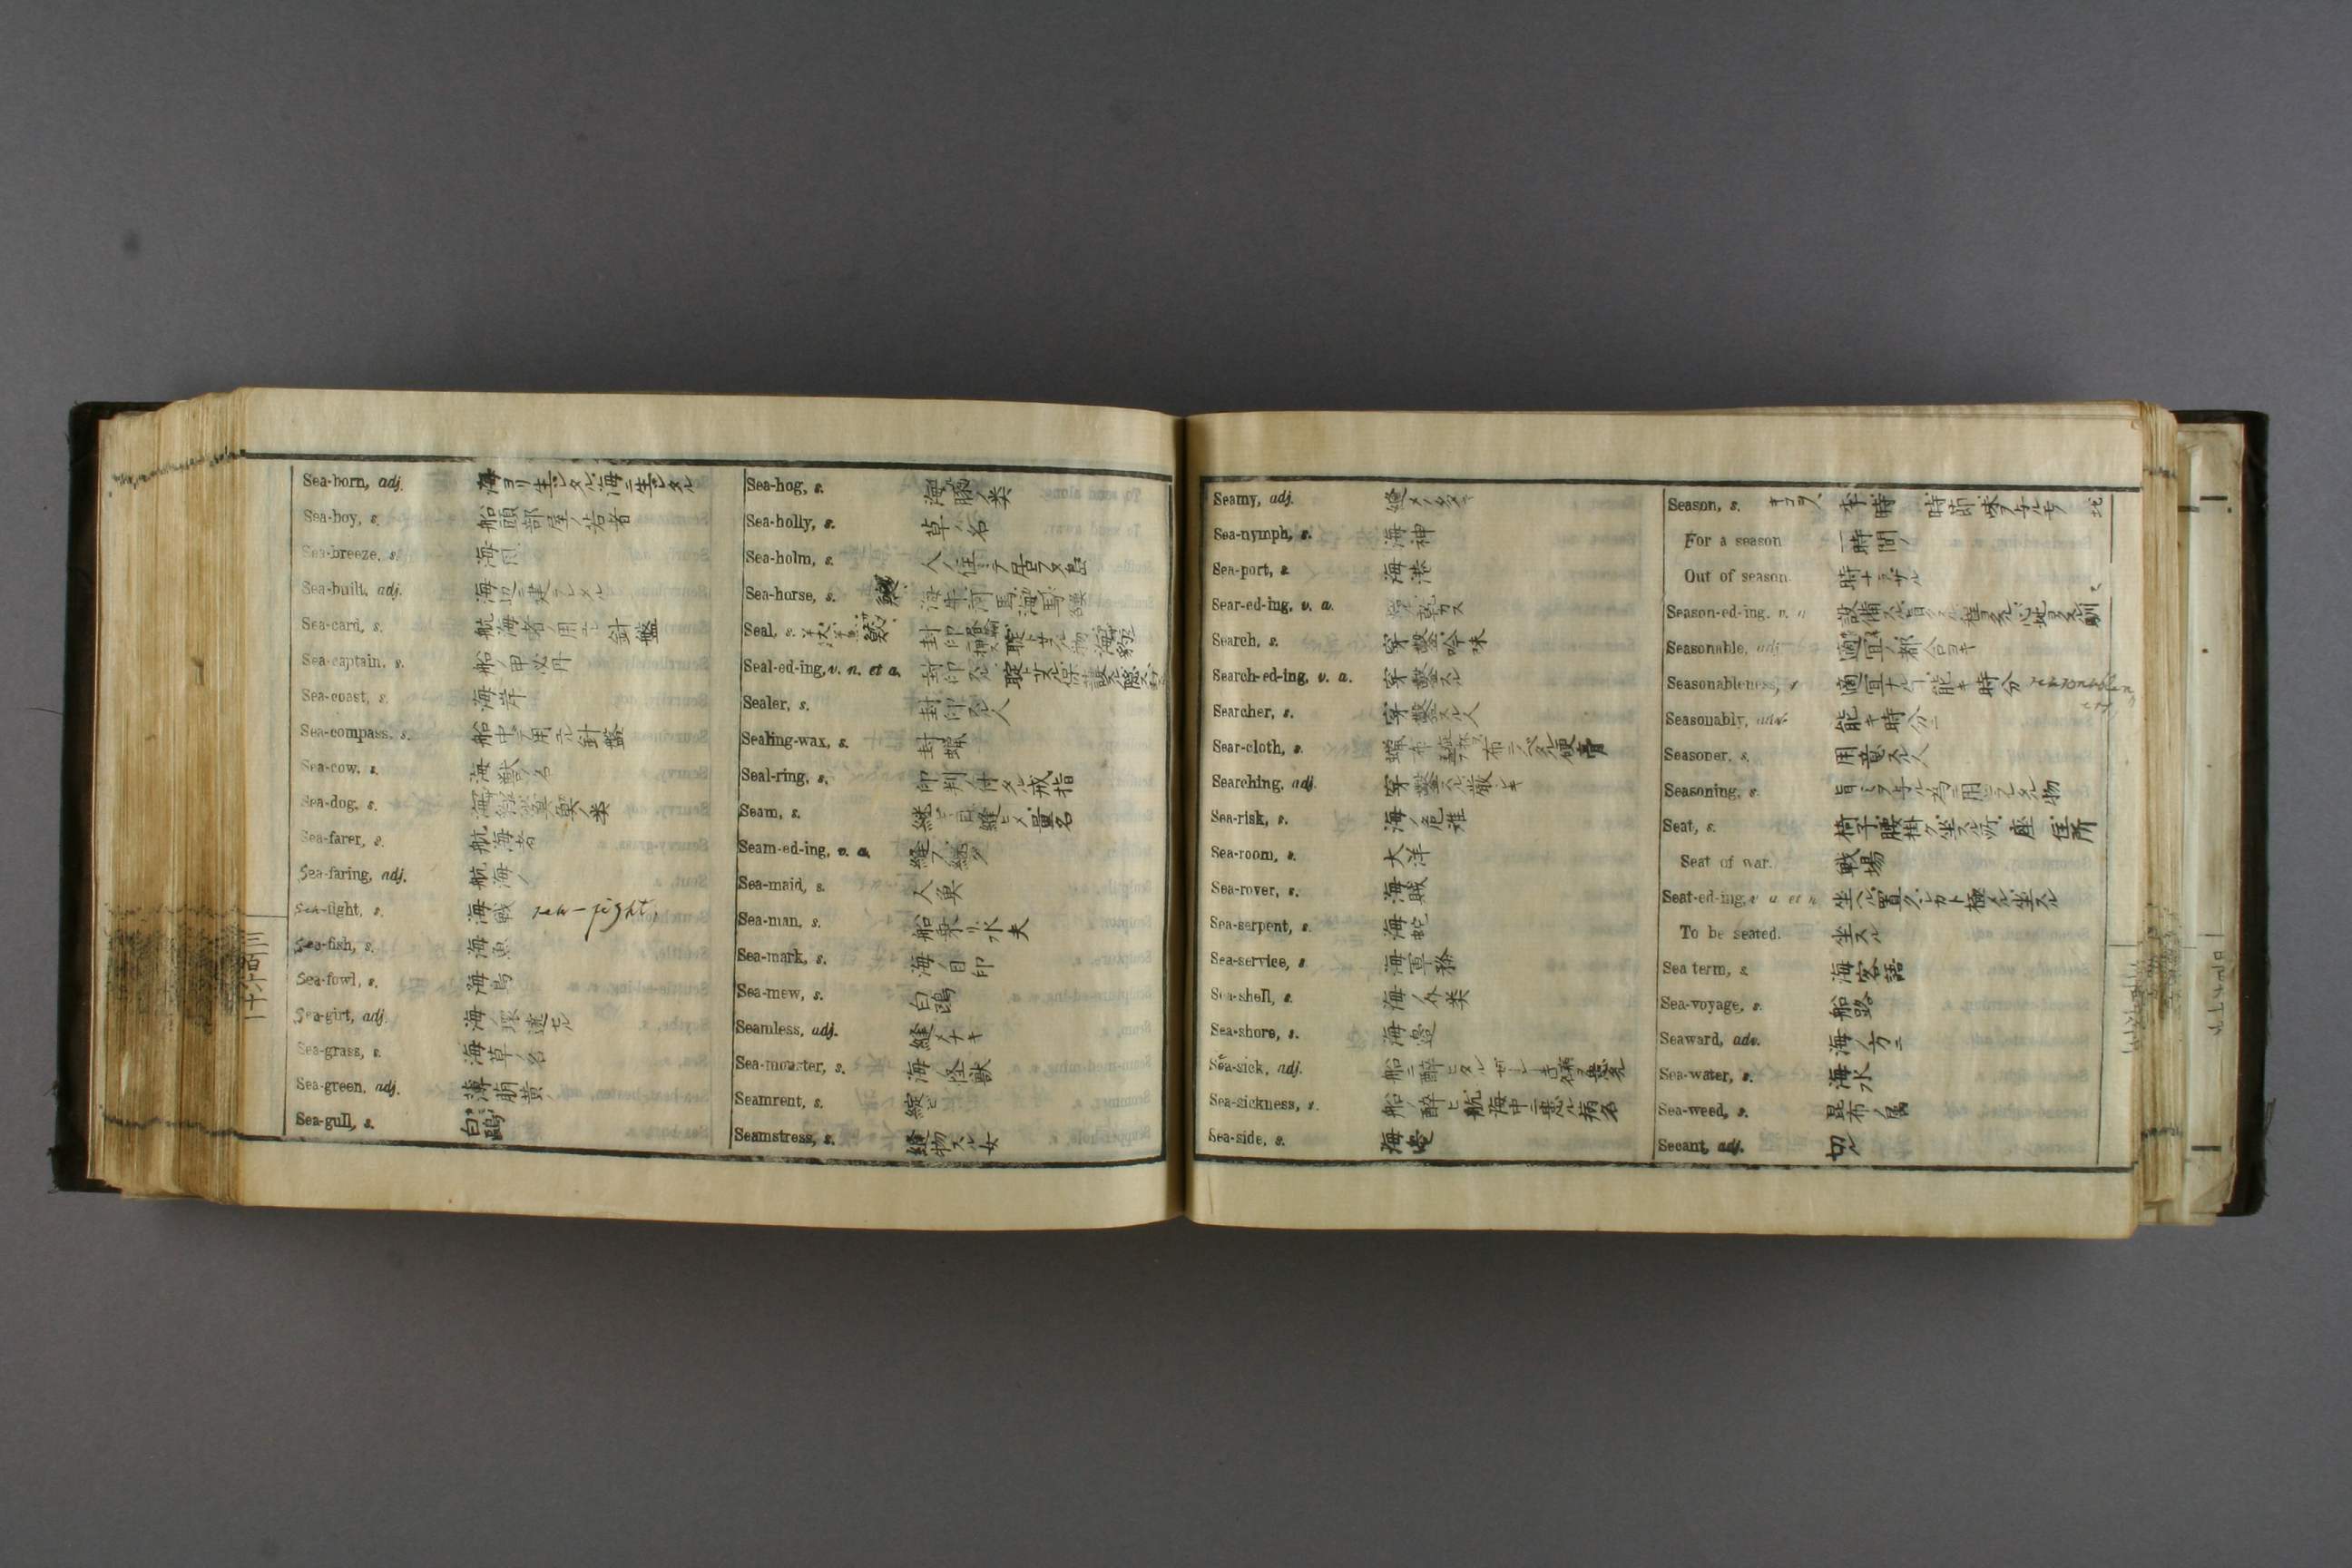 Sea-born, adj. 海ヨリ生ジタル海ニ生ジタル
Sea-boy, s. 船頭部屋ノ若者
Sea-breeze, s. 海風
Sea-built, adj. 海
Sea-card, s. 航海者ノ用ユル針盤
Sea-captain, s. 船ノ甲必丹
Sea-coast, s. 海岸
Sea-compass, s. 船中ニ用ユル針盤
Sea-cow, s. 海獣ノ名
Sea-dog, s.
Sea-farer, s. 航海者
Sea-faring, adj. 航海ノ
Sea-fight, s. 海戦 sea-fight,
Sea-fish, s. 海魚
Sea-fowl, s. 海鳥
Sea-girt, adj. 海ノ
Sea-grass, s. 海草ノ名
Sea-green, adj. 薄萌黄ノ
Sea-gull, s. 白鷗
Sea-hog, s. 海豚ノ類
Sea-holly, s. 草ノ名
Sea-holm, s. 人ノ住ミテ居ラヌ島
Sea-horse, s. 海牛河馬海馬
Seal, s. 封印
Seal-ed-ing, v. n. et a. 封印スル
Sealer, s. 封印スル人
Sealing-wax, s. 封蝋
Seal-ring, s. 印判ノ付タル戒指
Seam, s. 継ギ目縫ヒメ量名
Seam-ed-ing, v. a. 縫フ継グ
Sea-maid, s. 人魚
Sea-man, s. 船乗リ水夫
Sea-mark, s. 海ノ目印
Sea-mew, s. 白鷗
Seamless, adj. 縫メナキ
Sea-monster, s. 海ノ怪獣
Seamrent, s. 綻ビ
Seamstress, s. 縫物スル女
Seamy, adj. 縫メノ多キ
Sea-nymph, s. 海神
Sea-port, s. 海港
Sear-ed-ing, v. a. 乾カス
Search, s. 穿鑿吟味
Search-ed-ing, v. a. 穿鑿スル
Searcher, s. 穿鑿スル人
Sear-cloth, s. 蝋布
Searching, adj. 穿鑿スル厳シキ
Sea-risk, s. 海ノ危難
Sea-room, s. 大洋
Sea-rover, s. 海賊
Sea-serpent, s. 海蛇
Sea-service, s. 海軍務
Sea-shell, s. 海ノ介類
Sea-shore, s. 海邉
Sea-sick, adj. 船ニ醉ヒタル
Sea-sickness, s. 船ノ醉ヒ航海中ニ患ル病名
Sea-side, s. 海邉
Season, s. 季時
For a season 一時間ノ
Out of season. 時ナラザル
Season-ed-ing, v. a
Seasonable, adj 適宜ノ都合ヨキ
Seasonableness, s 適宜ナルヿ能キ時分
Seasonably, adv. 能キ時分ニ
Seasoner, s. 用意スル人
Seasoning, s.
Seat, s. 椅子腰掛ケ坐スル所座住所
Seat of war. 戦場
Seat-ed-ing, v a et n
To be seated. 坐スル
Sea term, s. 海客語
Sea-voyage, s. 船路
Seaward, adv. 海ノ方ニ
Sea-water, s. 海水
Sea-weed, s. 昆布ノ属
Secant, adj. 切ル